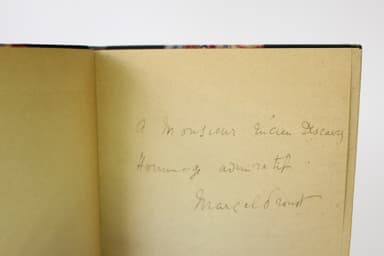 A Monsieur Lucien Descaves
Hommage admiratif.
Marcel Proust